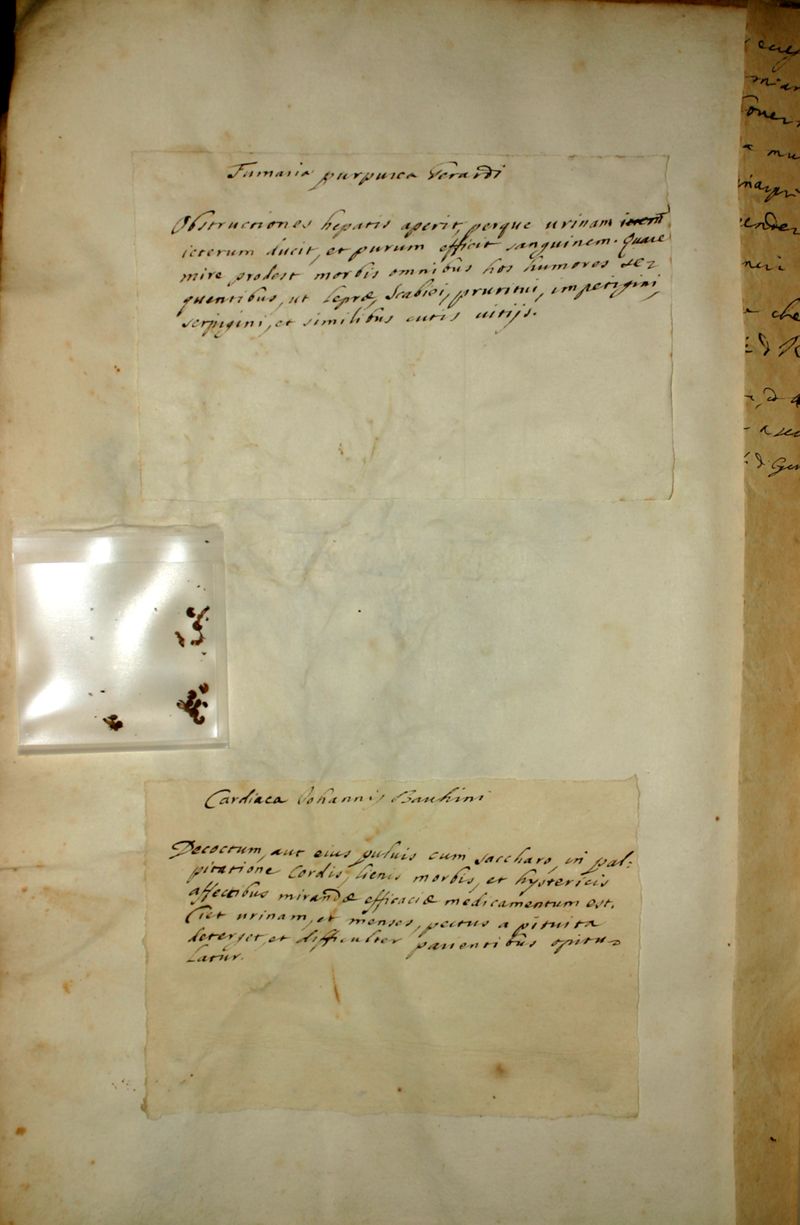 Fumaria purpurea Gerardi
Obstructiones hepatis aperit, perque urinam
icterum ducit, et purum efficit sanguinem. Quare
mire prodest morbis omnibus hos humores se-
quentibus, ut Lepræ, Scabiei, pruritui, impetigini,
serpigini, et similibus cutis vitijs.
Cardiaca Johannis Bauhini
Decoctum, aut eius puluis cum saccharo, in pal:
pitatione Cordis, Lienis morbis, et hystericis
affectibus mirandæ efficaciæ medicamentum est.
Ciet urinam, et menses, pectus a pituita
deterget, et difficulter parientibus opitu-
latur.